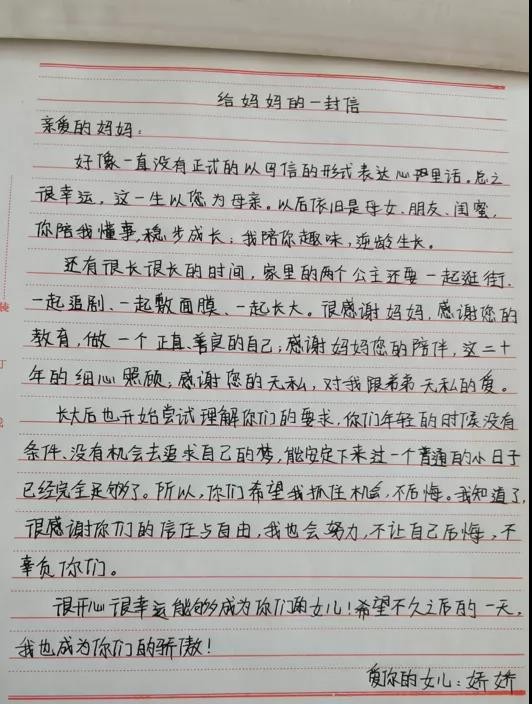 给妈妈的一封信
亲爱的妈妈:
好像一直没有正式的以写信的形式表达心理里话。总之
很幸运,这一生以您为母亲。以后依旧是母女、朋友、闺蜜,
你陪我懂事,稳步成长;我陪你趣味,逆龄生长。
还有很长很长的时间,家里的两个公主还要一起逛街、
一起追剧、一起敷面膜、一起长大。很感谢妈妈,感谢您的
教育,做一个正直、善良的自己;感谢妈妈您的陪伴,这二十
年的细心照顾;感谢您的无私,对我跟弟弟无私的爱。
长大后也开始尝试理解你们的要求,你们年轻的时候没有
条件、没有机会去追求自己的梦,能安定下来过一个普通的小日子
已经完全足够了。所以,你们希望我抓住机会,不后悔。我知道了,
很感谢你们的信任与自由,我也会努力,不让自己后悔,不
辜负你们。
很开心很幸运能够成为你们的女儿!希望不久之后的一天,
我也成为你们的骄傲!
爱你的女儿:娇娇
装
订